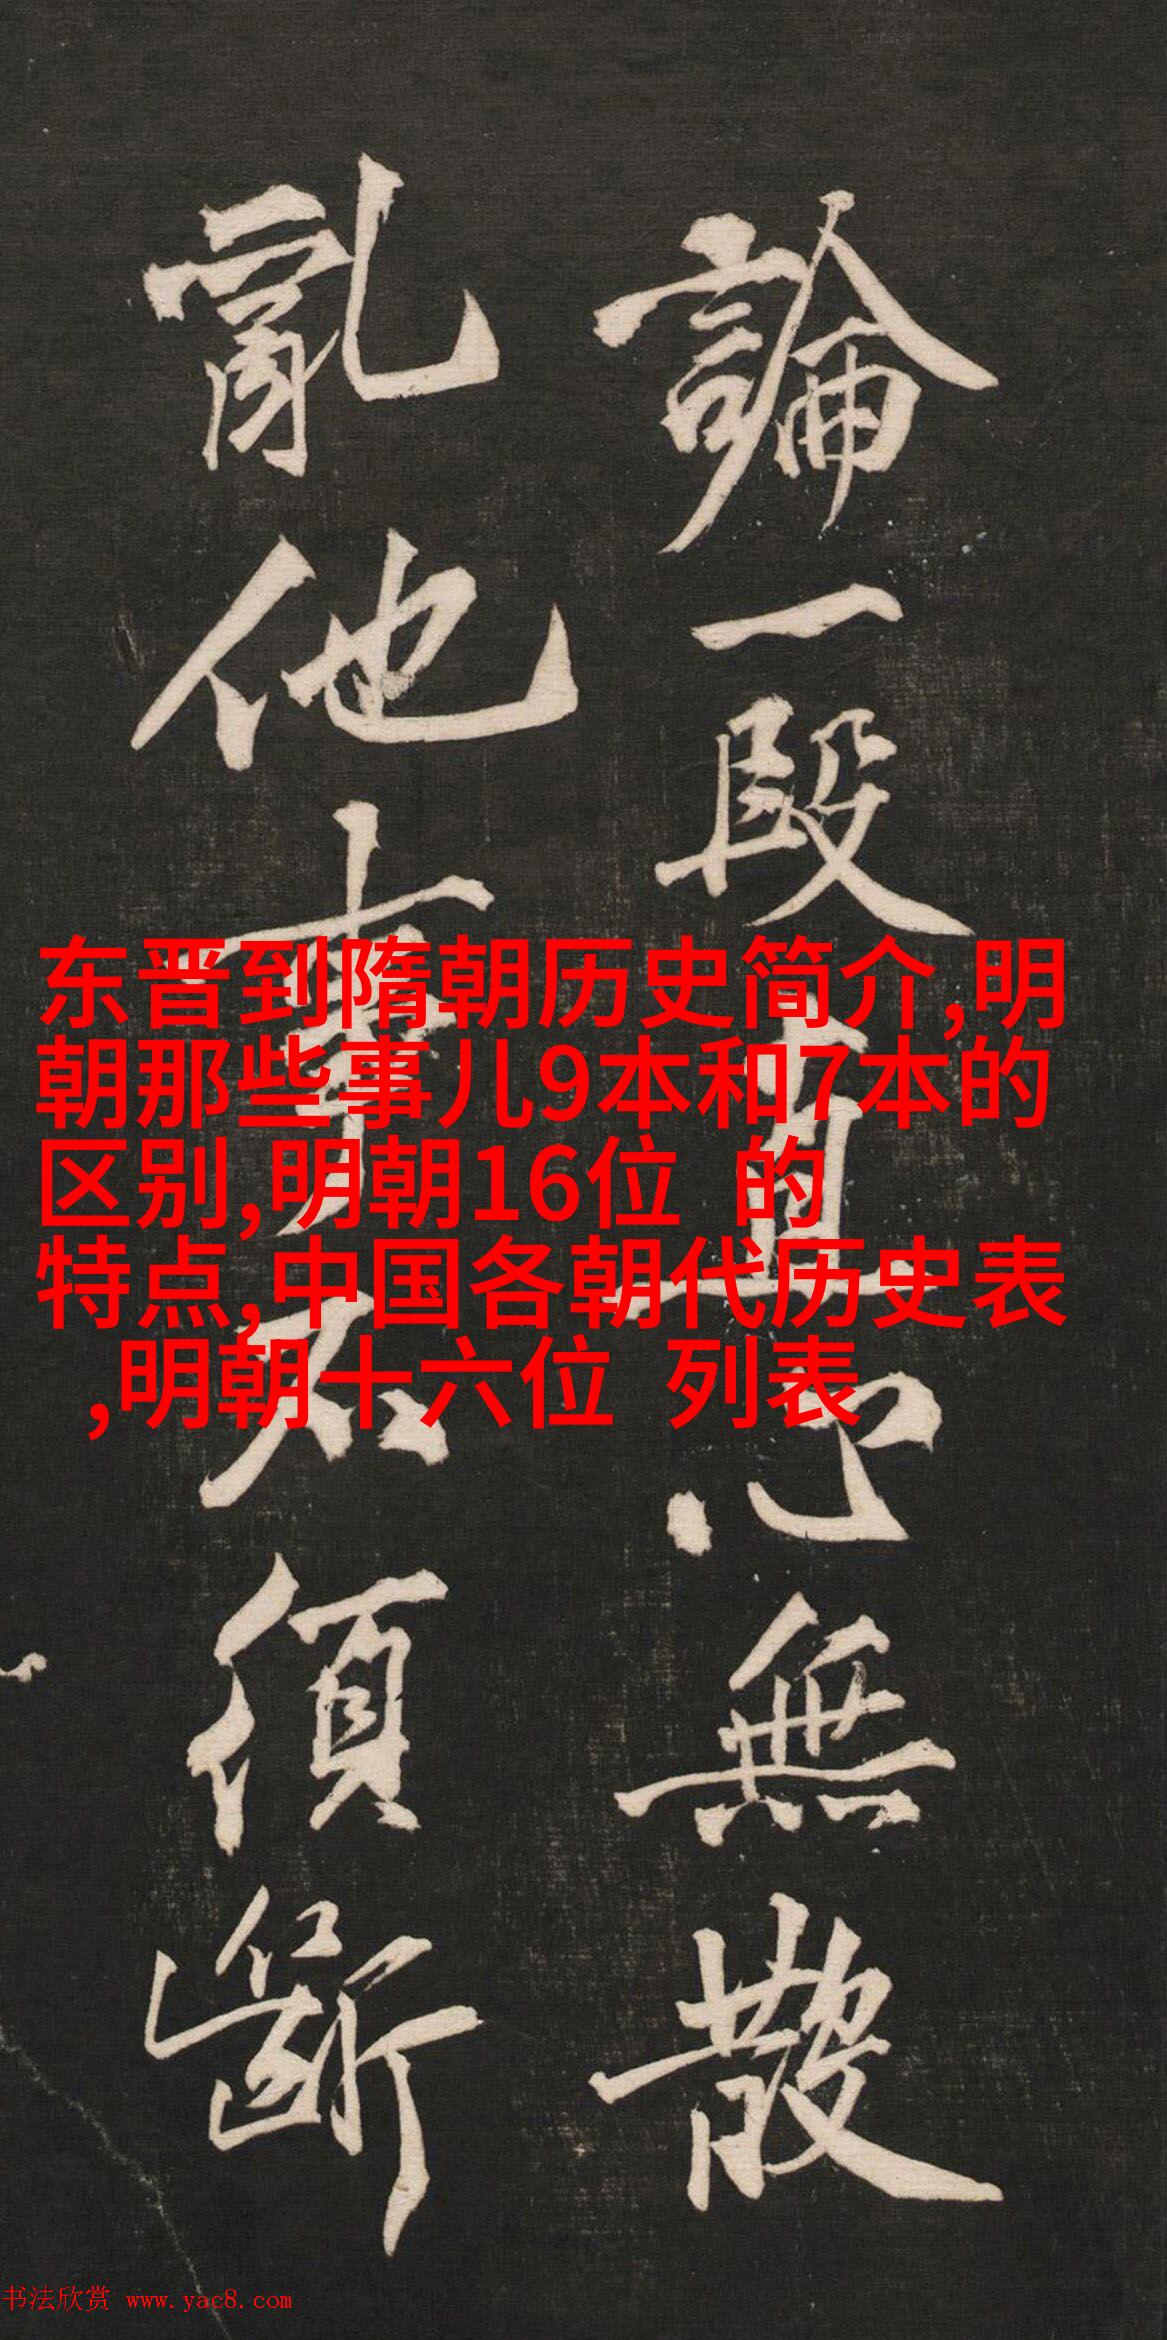 論一段直心無散
亂他事不須斷
东晋到隋朝历史简介,明
朝那些事儿9本和7本的
区别,明朝16位 的
特点,中国各朝代历史表
,明朝十六位 列表
书法欣赏 www.yac8.com